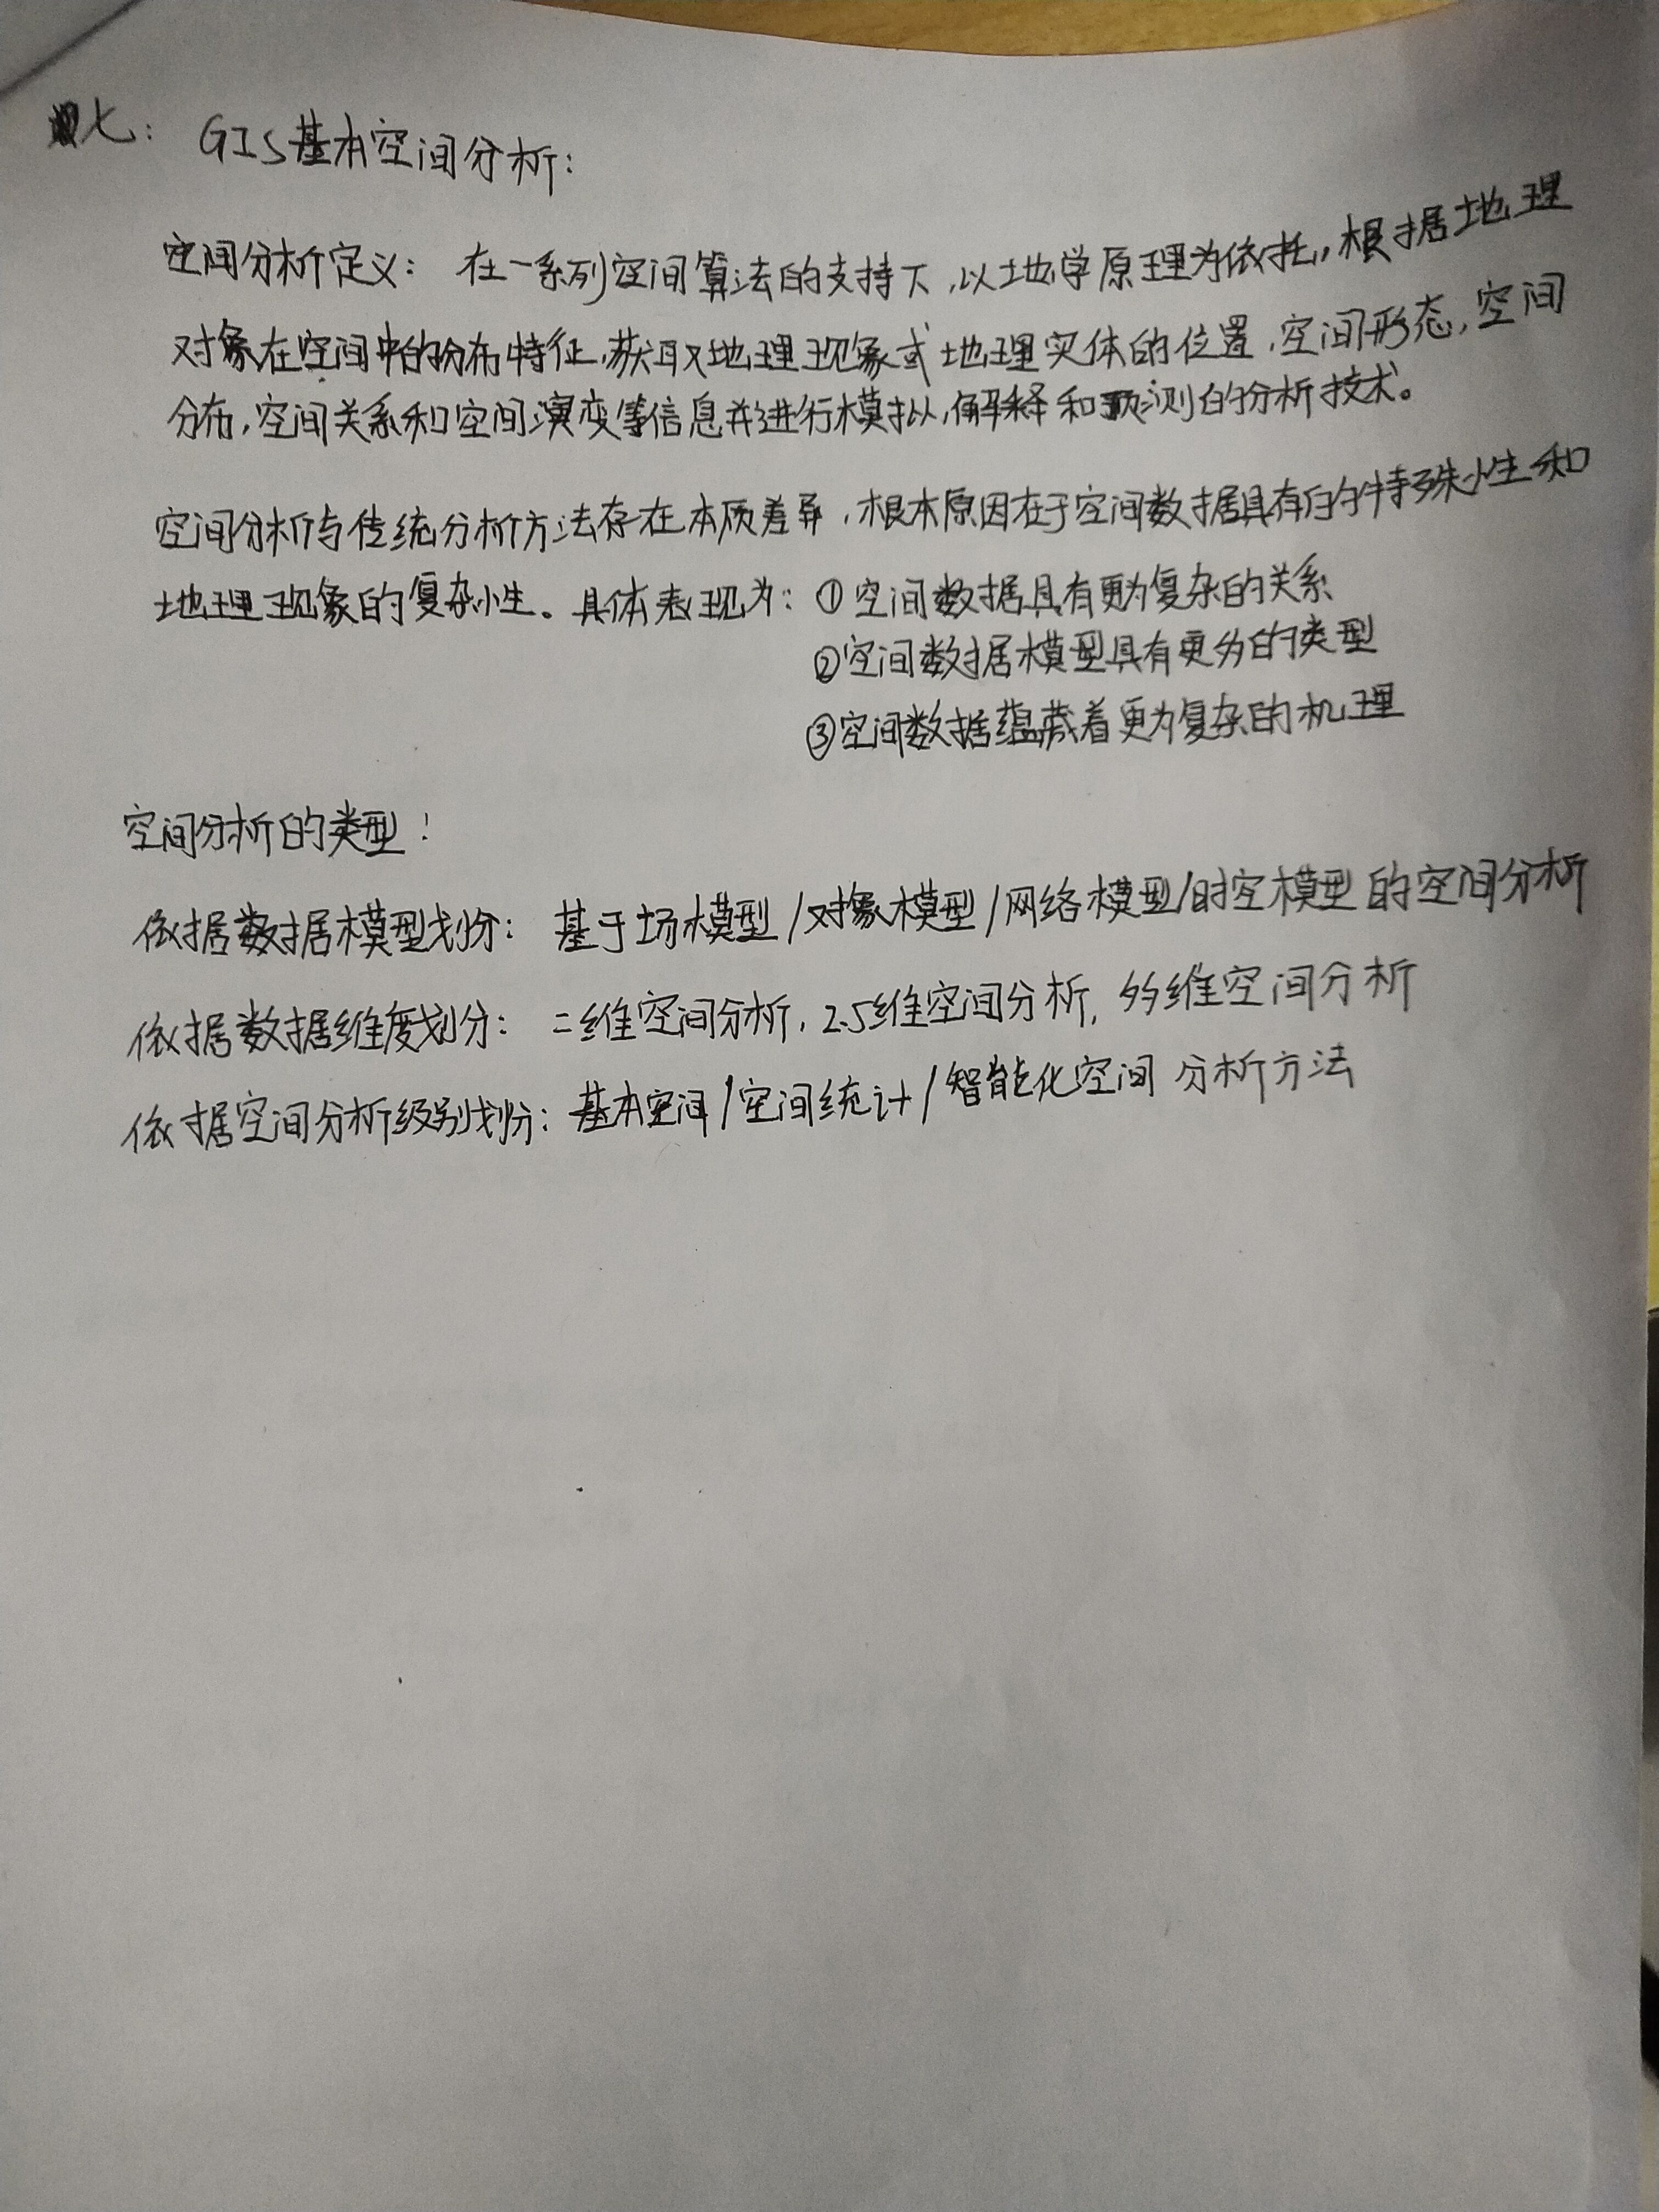 七：GIS基本空间分析：
空间分析定义：在一系列空间算法的支持下，以地学原理为依托，根据地理
对象在空间中的分布特征，获取地理现象或地理实体的位置，空间形态，空间
分布，空间关系和空间演变等信息并进行模拟，解释和预测的分析技术。
空间分析与传统分析方法存在本质差异，根本原因在于空间数据具有的特殊性和
地理现象的复杂性。具体表现为：①空间数据具有更为复杂的关系
②空间数据模型具有更多的类型
③空间数据蕴藏着更为复杂的机理
空间分析的类型：
依据数据模型划分：基于场模型/对象模型/网络模型/时空模型的空间分析
依据数据维度划分：二维空间分析，2.5维空间分析，多维空间分析
依据空间分析级别划分：基本空间/空间统计/智能化空间分析方法